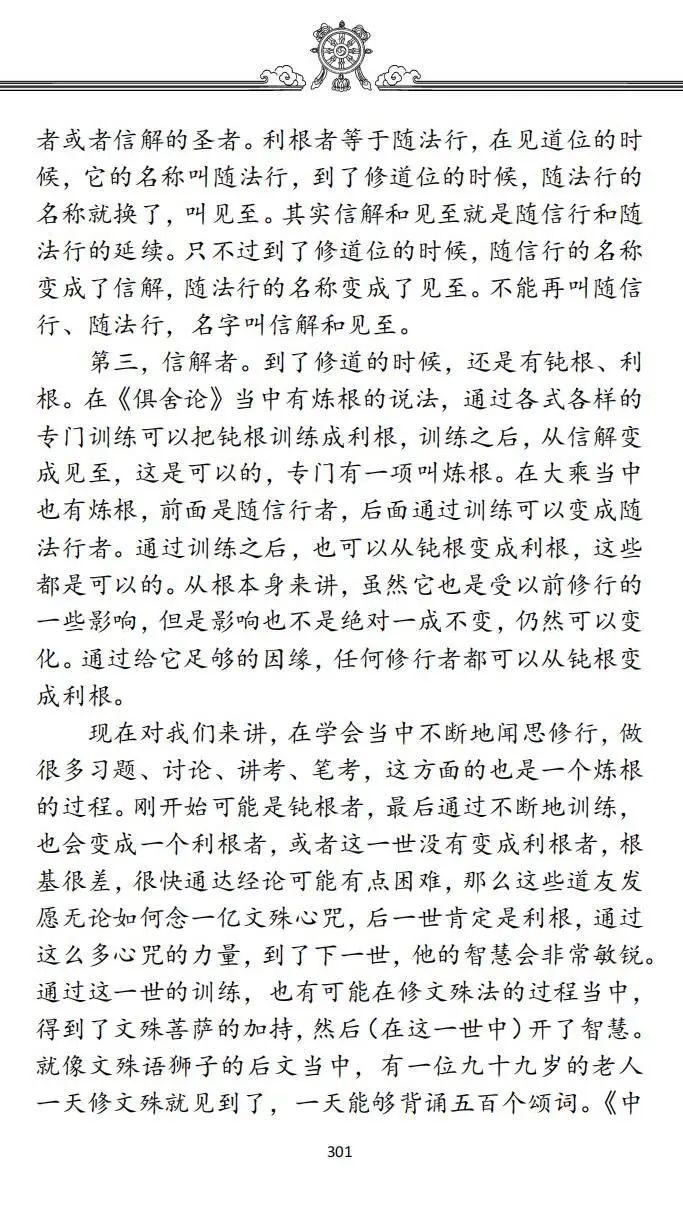 者或者信解的圣者。利根者等于随法行，在见道位的时
候，它的名称叫随法行，到了修道位的时候，随法行的
名称就换了，叫见至。其实信解和见至就是随信行和随
法行的延续。只不过到了修道位的时候，随信行的名称
变成了信解，随法行的名称变成了见至。不能再叫随信
行、随法行，名字叫信解和见至。
第三，信解者。到了修道的时候，还是有钝根、利
根。在《俱舍论》当中有炼根的说法，通过各式各样的
专门训练可以把钝根训练成利根，训练之后，从信解变
成见至，这是可以的，专门有一项叫炼根。在大乘当中
也有炼根，前面是随信行者，后面通过训练可以变成随
法行者。通过训练之后，也可以从钝根变成利根，这些
都是可以的。从根本身来讲，虽然它也是受以前修行的
一些影响，但是影响也不是绝对一成不变，仍然可以变
化。通过给它足够的因缘，任何修行者都可以从钝根变
成利根。
现在对我们来讲，在学会当中不断地闻思修行，做
很多习题、讨论、讲考、笔考，这方面的也是一个炼根
的过程。刚开始可能是钝根者，最后通过不断地训练，
也会变成一个利根者，或者这一世没有变成利根者，根
基很差，很快通达经论可能有点困难，那么这些道友发
愿无论如何念一亿文殊心咒，后一世肯定是利根，通过
这么多心咒的力量，到了下一世，他的智慧会非常敏锐。
通过这一世的训练，也有可能在修文殊法的过程当中，
得到了文殊菩萨的加持，然后（在这一世中）开了智慧。
就像文殊语狮子的后文当中，有一位九十九岁的老人
一天修文殊就见到了，一天能够背诵五百个颂词。《中
301